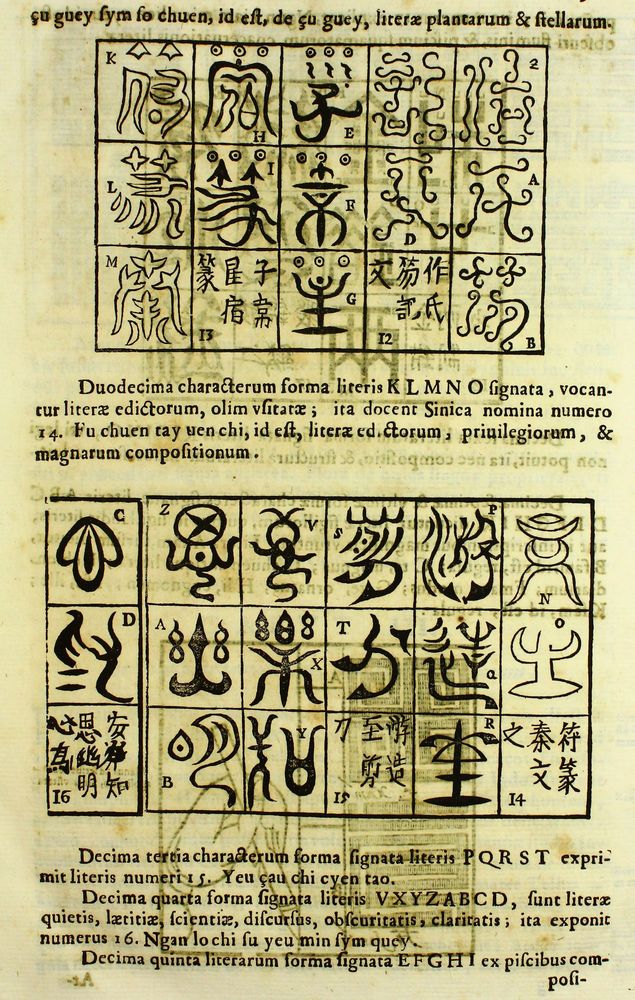 çu guey sym so chuen, id est, de çu guey, literæ plantarum & stellarum.
K H E C 2
L I F D A
M G B
子
星宿
篆
13
作氏
笏記
文
12
Duodecima characterum forma literis K L M N O signata, vocan-
tur literæ edictorum, olim vsitatæ; ita docent Sinica nomina numero
14. Fu chuen tay uen chi, id est, literæ edictorum, priuilegiorum, &
magnarum compositionum.
C Z V S P N
D A X T Q
B Y R
安知
思幽明
心為
16
游造
至剪
刀
15
符篆
秦文
之
14
Decima tertia characterum forma signata literis P Q R S T expri-
mit literis numeri 15. Yeu çau chi cyen tao.
Decima quarta forma signata literis V X Y Z A B C D, sunt literæ
quietis, lætitiæ, scientiæ, discursus, obscuritatis, claritatis; ita exponit
numerus 16. Ngan lo chi su yeu min sym quey.
Decima quinta literarum forma signata E F G H I ex piscibus com-
posi-